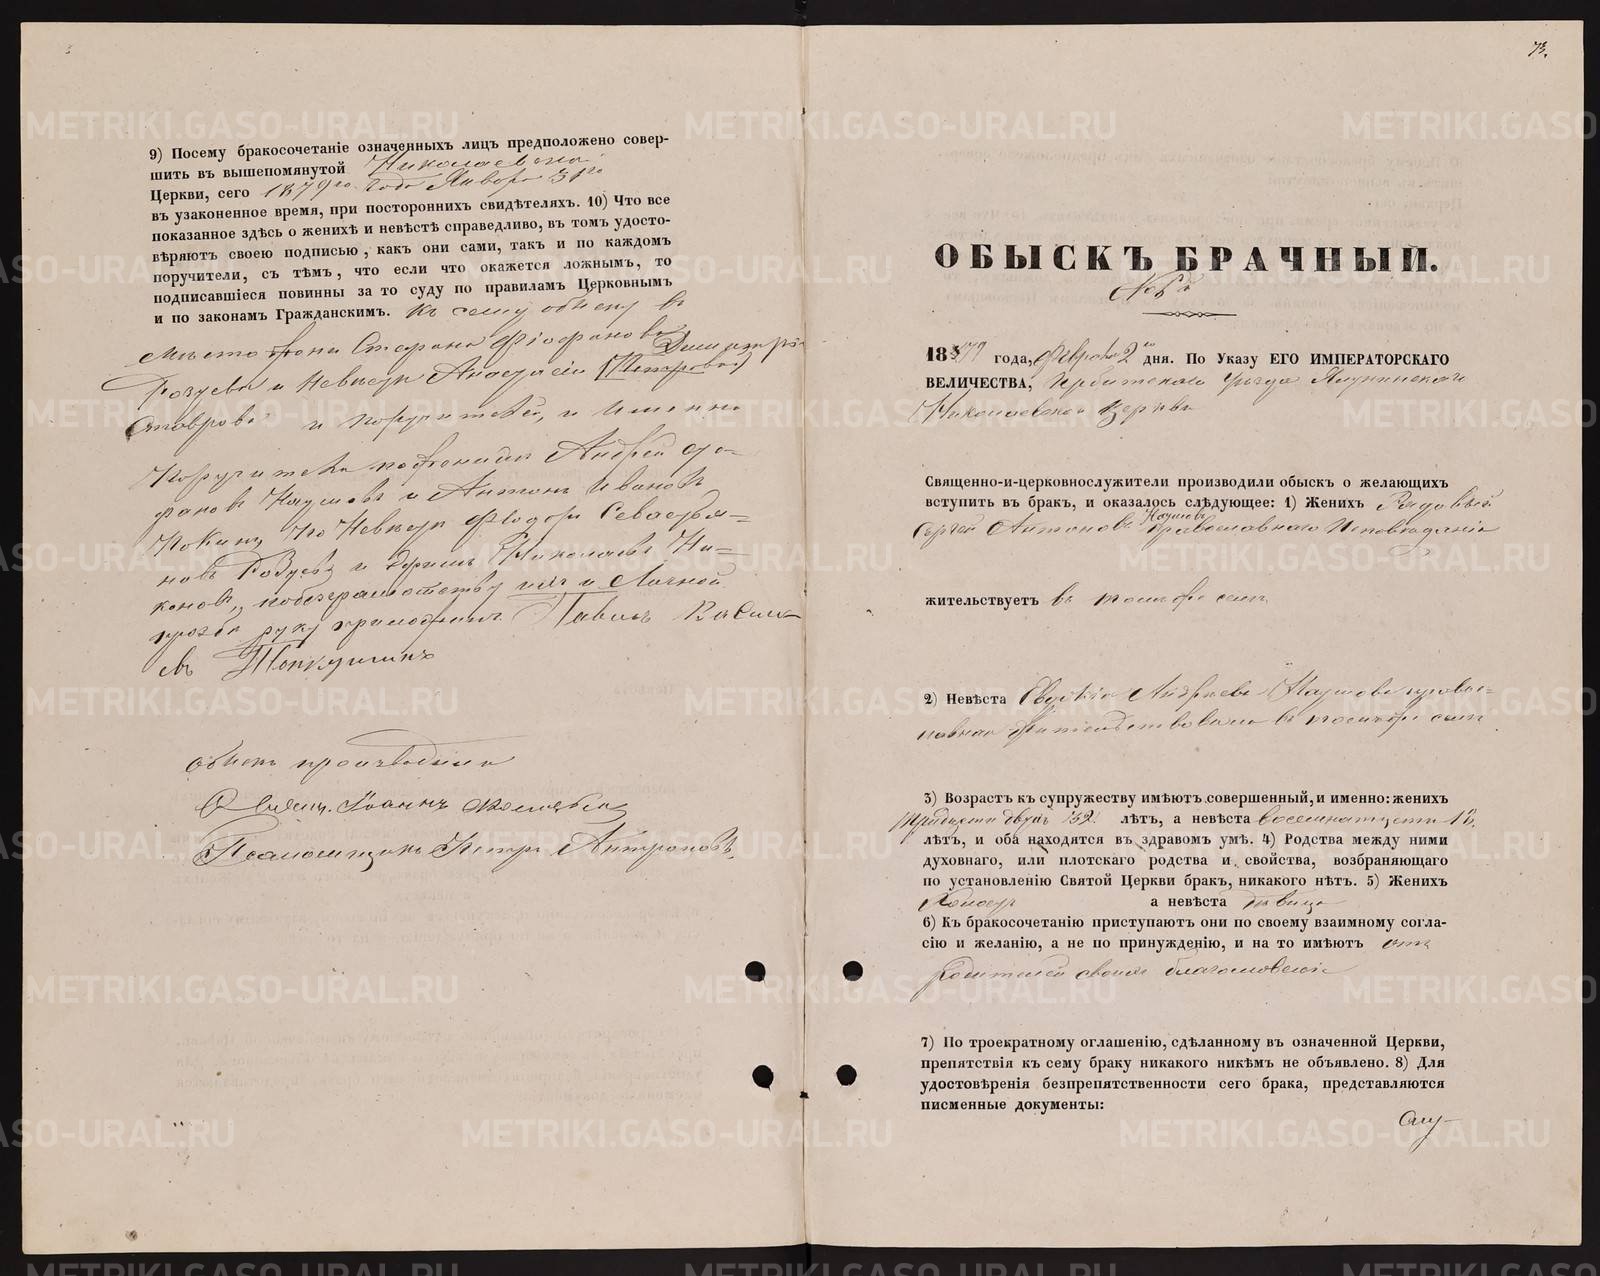 9) Посему бракосочетаніе означенныхъ лицъ предположено совер-
шить въ вышепомянутой Николаевской
Церкви, сего 1879го года Января 31го
въ узаконенное время, при постороннихъ свидѣтеляхъ. 10) Что все
показанное здѣсь о женихѣ и невѣстѣ справедливо, въ томъ удосто-
вѣряютъ своею подписью, какъ они сами, такъ и по каждомъ
поручители, съ тѣмъ, что если что окажется ложнымъ, то
подписавшіеся повинны за то суду по правиламъ Церковнымъ
и по законамъ Гражданскимъ. Къ сему обыску в
мѣсто Стефана
и Невѣсты Анастасіи Петровой
и поручителей, и Именно
Поручители по женихѣ Андрей
Наумовъ и Антонъ Ивановъ
по Невѣстѣ Федоръ Севастья-
новъ и Николаевъ Ни-
коновъ, по безграмотству ихъ и Личной
прозбѣ руку приложилъ Павелъ Василь-
евъ
обыскъ производили
Свящ. Іоаннъ
Псаломщикъ Петръ
73.
ОБЫСКЪ БРАЧНЫЙ.
№ 6й
1879 года, Февраля 2 дня. По Указу ЕГО ИМПЕРАТОРСКАГО
ВЕЛИЧЕСТВА, Ирбитскаго Уѣзда
Николаевской церкви
Священно-и-церковнослужители производили обыскъ о желающихъ
вступить въ бракъ, и оказалось слѣдующее: 1) Женихъ Рядовый
Сергей Антоновъ Наумовъ Православнаго Исповѣданія
жительствуетъ въ томъ же селѣ
2) Невѣста Евдокія Андреева Наумова правос-
лавная жительствовала въ томъ же селѣ
3) Возрастъ къ супружеству имѣютъ совершенный, и именно: женихъ
тридцати двухъ 32 лѣтъ, а невѣста восемнатцети 18.
лѣтъ, и оба находятся въ здравомъ умѣ. 4) Родства между ними
духовнаго, или плотскаго родства и свойства, возбраняющаго
по установленію Святой Церкви бракъ, никакого нѣтъ. 5) Женихъ
Холостъ а невѣста дѣвица
6) Къ бракосочетанію приступаютъ они по своему взаимному согла-
сію и желанію, а не по принужденію, и на то имѣютъ отъ
родителей своихъ благословеніе
7) По троекратному оглашенію, сдѣланному въ означенной Церкви,
препятствія къ сему браку никакого никѣмъ не объявлено. 8) Для
удостовѣренія безпрепятственности сего брака, представляются
писменные документы: